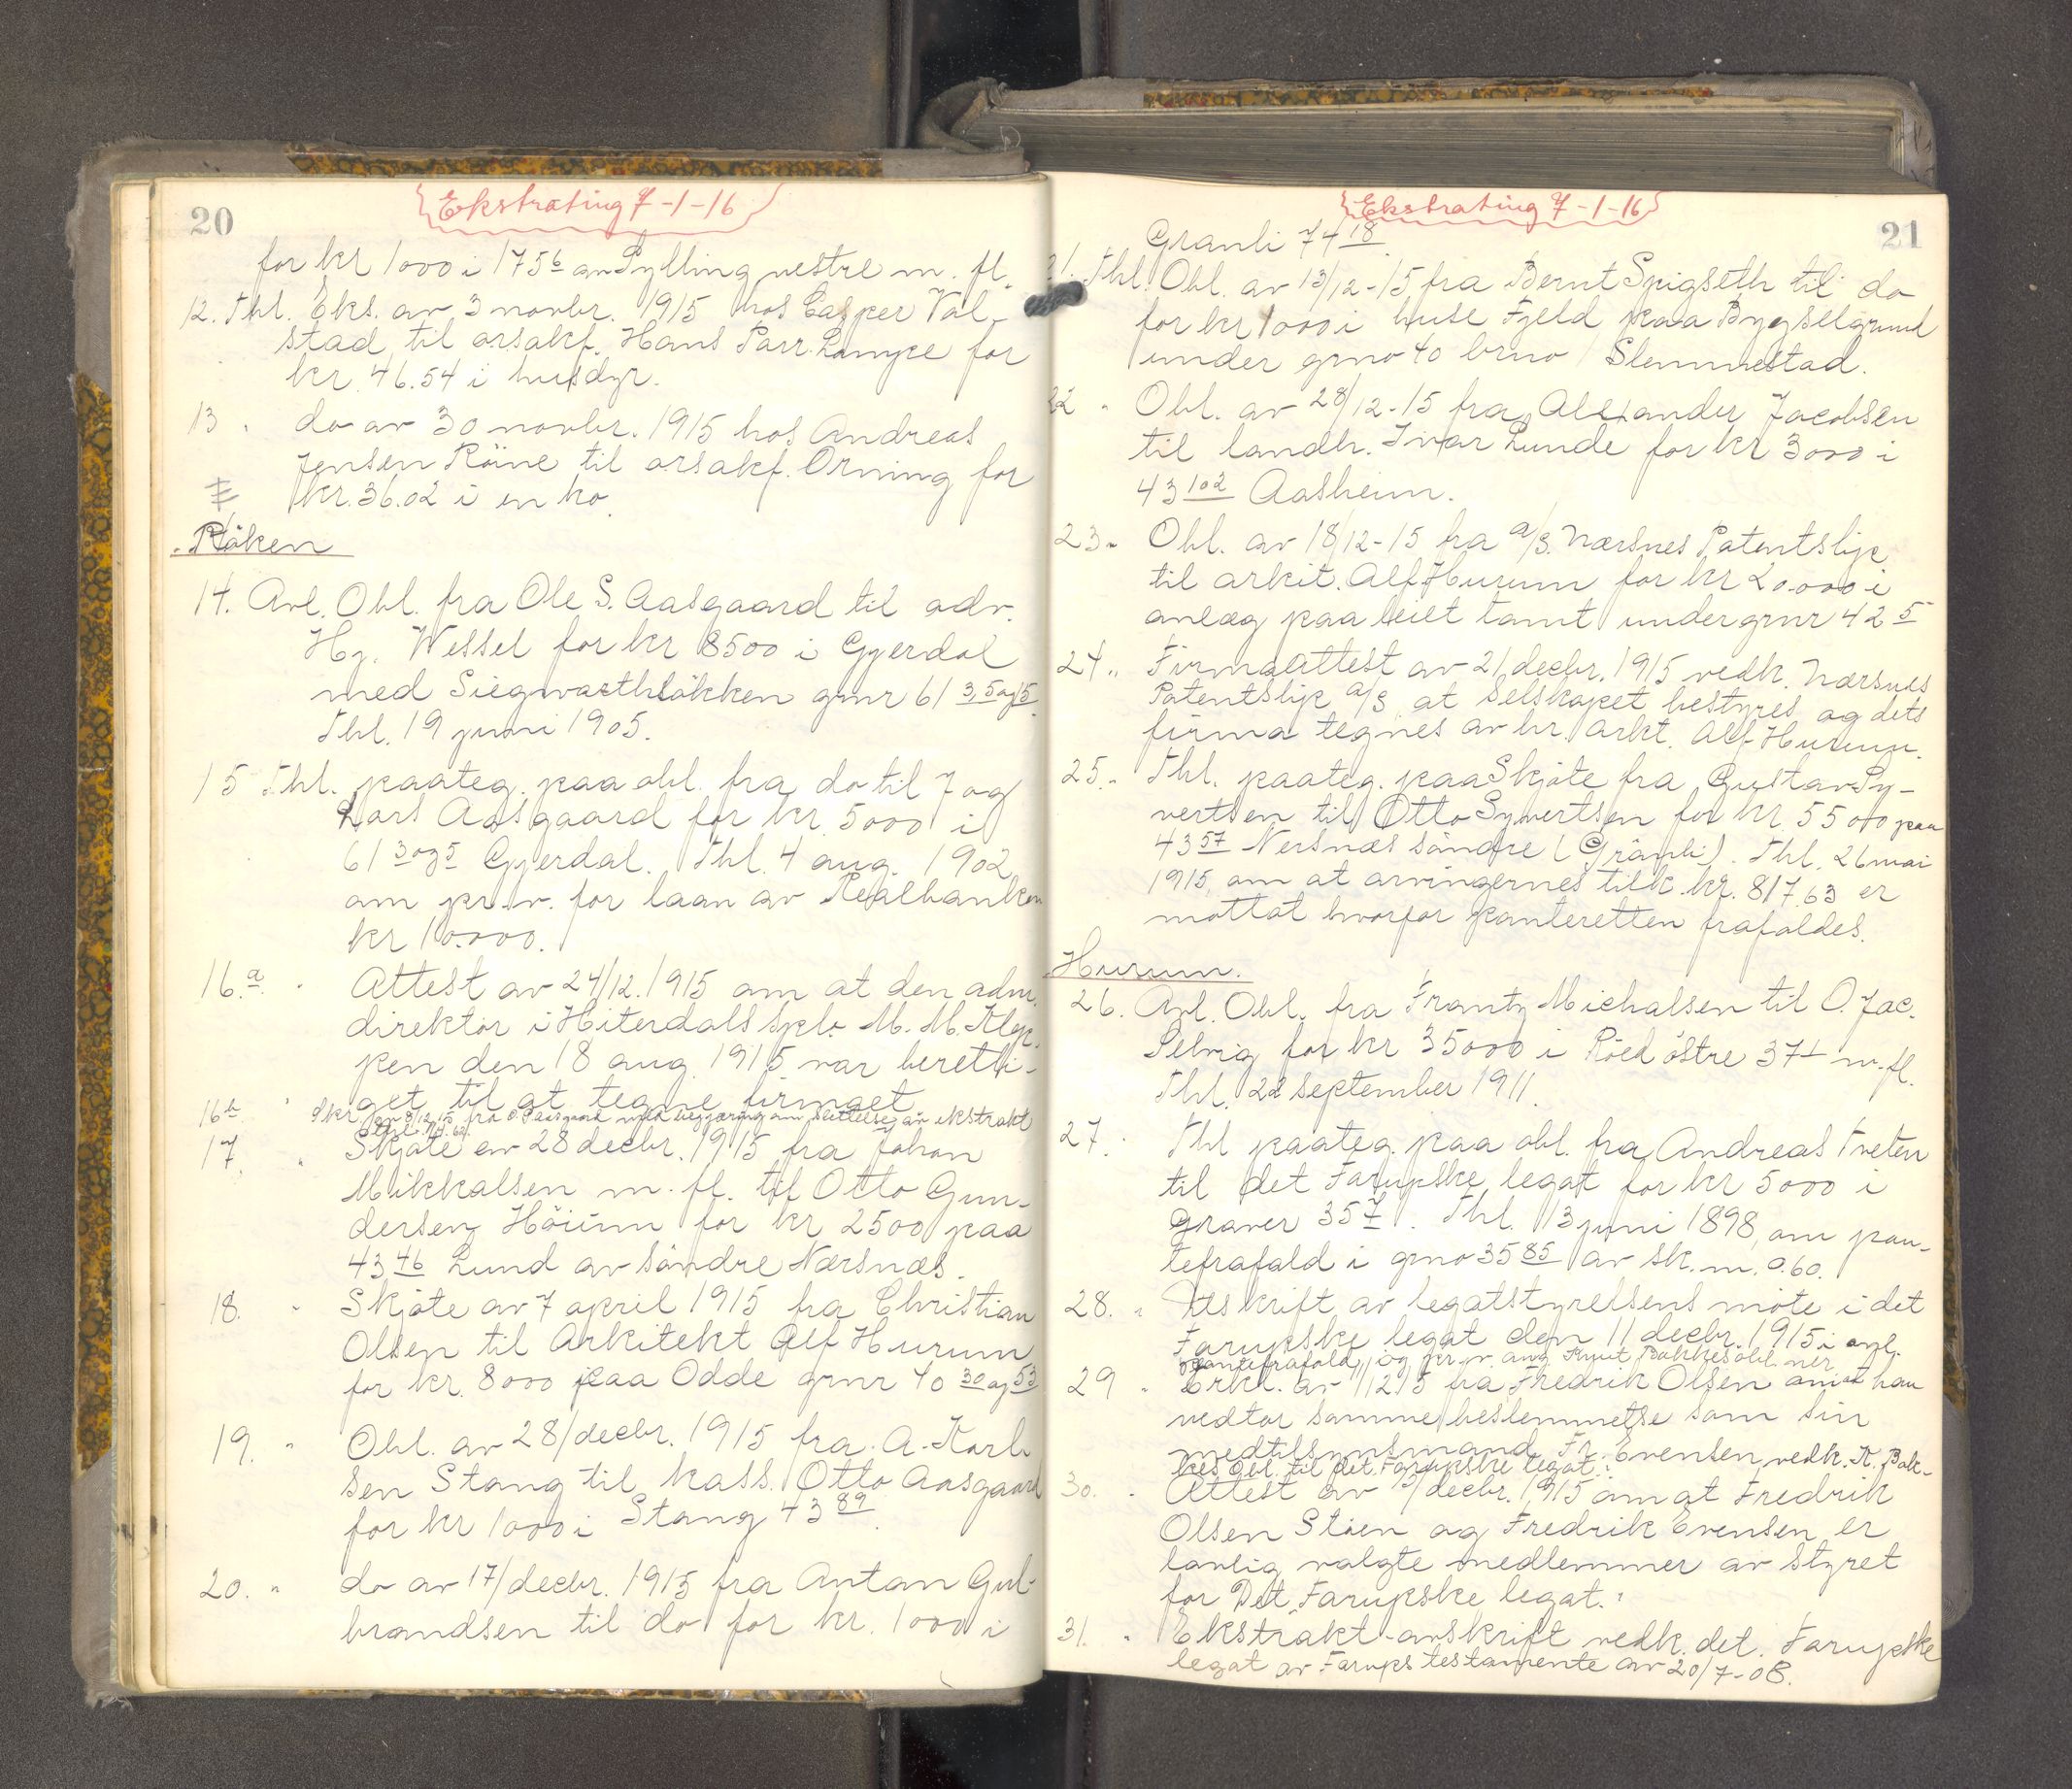 20
Ekstrating 7-1-16
for kr 1000 i 175 6 av Sylling vestre m. fl.
12. Thl. Eks. av 3 novbr. 1915 hos Casper Val-
stad til orsakf. Hans Parr. for
kr. 46.54 i husdyr.
13 " do av 30 novbr. 1915 hos Andreas
Jensen Röine til orsakf. Orning for
kr. 36.02 i en ko.
Röken
14. Avl. Obl. fra Ole S. Aasgaard til adv.
Hj. Wessel for kr 8500 i Gjerdal
med Siegwarthlökken grnr 61 3, 5 og 15.
Thl. 19 juni 1905.
15 Thl. paateg. paa obl. fra do til J og
Lars Aasgaard for kr. 5000 i
61 3 og 5 Gjerdal. Thl. 4 aug. 1902
om pr. v. for laan av Realbanken
kr 10.000.
16.a. " Attest av 24/12.1915 om at den adm.
direktör i Hiterdals spb. M. M. Klep-
pen den 18 aug. 1915 var beretti-
get til at tegne firmaet.
16b. " Skr. av 8/12.15 fra O. Aasgaard med begjæring om slettelse av ekstrakt
17. " Skjöte av 28 decbr. 1915 fra Johan
Mikkalsen m. fl. til Otto Gun-
dersen Höium for kr 2500 paa
43 46 Lund av söndre Nærsnæs.
18. " Skjöte av 7 april 1915 fra Christian
Olsen til Arkitekt Alf Hurum
for kr. 8000 paa Odde grnr 40 30 og 53
19. " Obl. av 28/decbr. 1915 fra A. Karl-
sen Stang til kass. Otto Aasgaard
for kr 1000 i Stang 43 89.
20. " do av 17/decbr. 1915 fra Anton Gul-
brandsen til do for kr. 1000 i
21
Ekstrating 7-1-16
Granli 74 18.
21. Thl. Obl. av 13/12-15 fra Bernt Spigseth til do
for kr 1000 i huse Fjeld paa Bygselgrund
under grno 40 brno 1 Slemmestad.
22 " Obl. av 28/12-15 fra Alexander Jacobsen
til landh. Ivar Lunde for kr 3000 i
43 102 Aasheim.
23 " Obl. av 18/12-15 fra a/s. Nærsnes Patentslip
til arkit. Alf Hurum for kr 20.000 i
anlæg paa leiet tomt under grnr 42 5
24 " Firmaattest av 21 decbr. 1915 vedk. Nærsnes
Patentslip a/s at selskapet bestyres og dets
firma tegnes av hr. Arkt. Alf Hurum.
25 " Thl. paateg. paa Skjöte fra Gustav Sy-
vertsen til Otto Syvertsen for kr 5500 paa
43 57 Nersnæs söndre (Granli). Thl. 26 mai
1915, om at arvingernes tilk. kr. 817.63 er
mottat hvorfor panteretten frafaldes.
Hurum.
26. Avl. Obl. fra Frantz Michalsen til O. Jac.
Selvig for kr 35000 i Röed östre 37 1 m. fl.
Thl. 22 september 1911.
27. Thl paateg. paa obl. fra Andreas Tveten
til det Farupske legat for kr 5000 i
Graver 35 7. Thl. 13 juni 1898, om pan-
tefrafald i grno 35 85 av sk. m. 0.60.
28. " Utskrift av legatstyrelsens möte i det
Farupske legat den 11 decbr. 1915 i anl.
pantefrafald og pr. v. ang. Knut Bakkes obl.
29 " Erkl. av 11/12 15 fra Fredrik Olsen om at han
vedtar samme bestemmelse som sin
medtilsynsmand Fr. Evensen vedk. K. Bak-
kes Obl. til det Farupske legat.
30. " Attest av /decbr. 1915 om at Fredrik
Olsen Stöen og Fredrik Evensen er
lovlig valgte medlemmer av styret
for Det Farupske legat.
31. " Ekstrakt-avskrift vedk. det Farupske
legat av Farups testamente av 20/7-08.